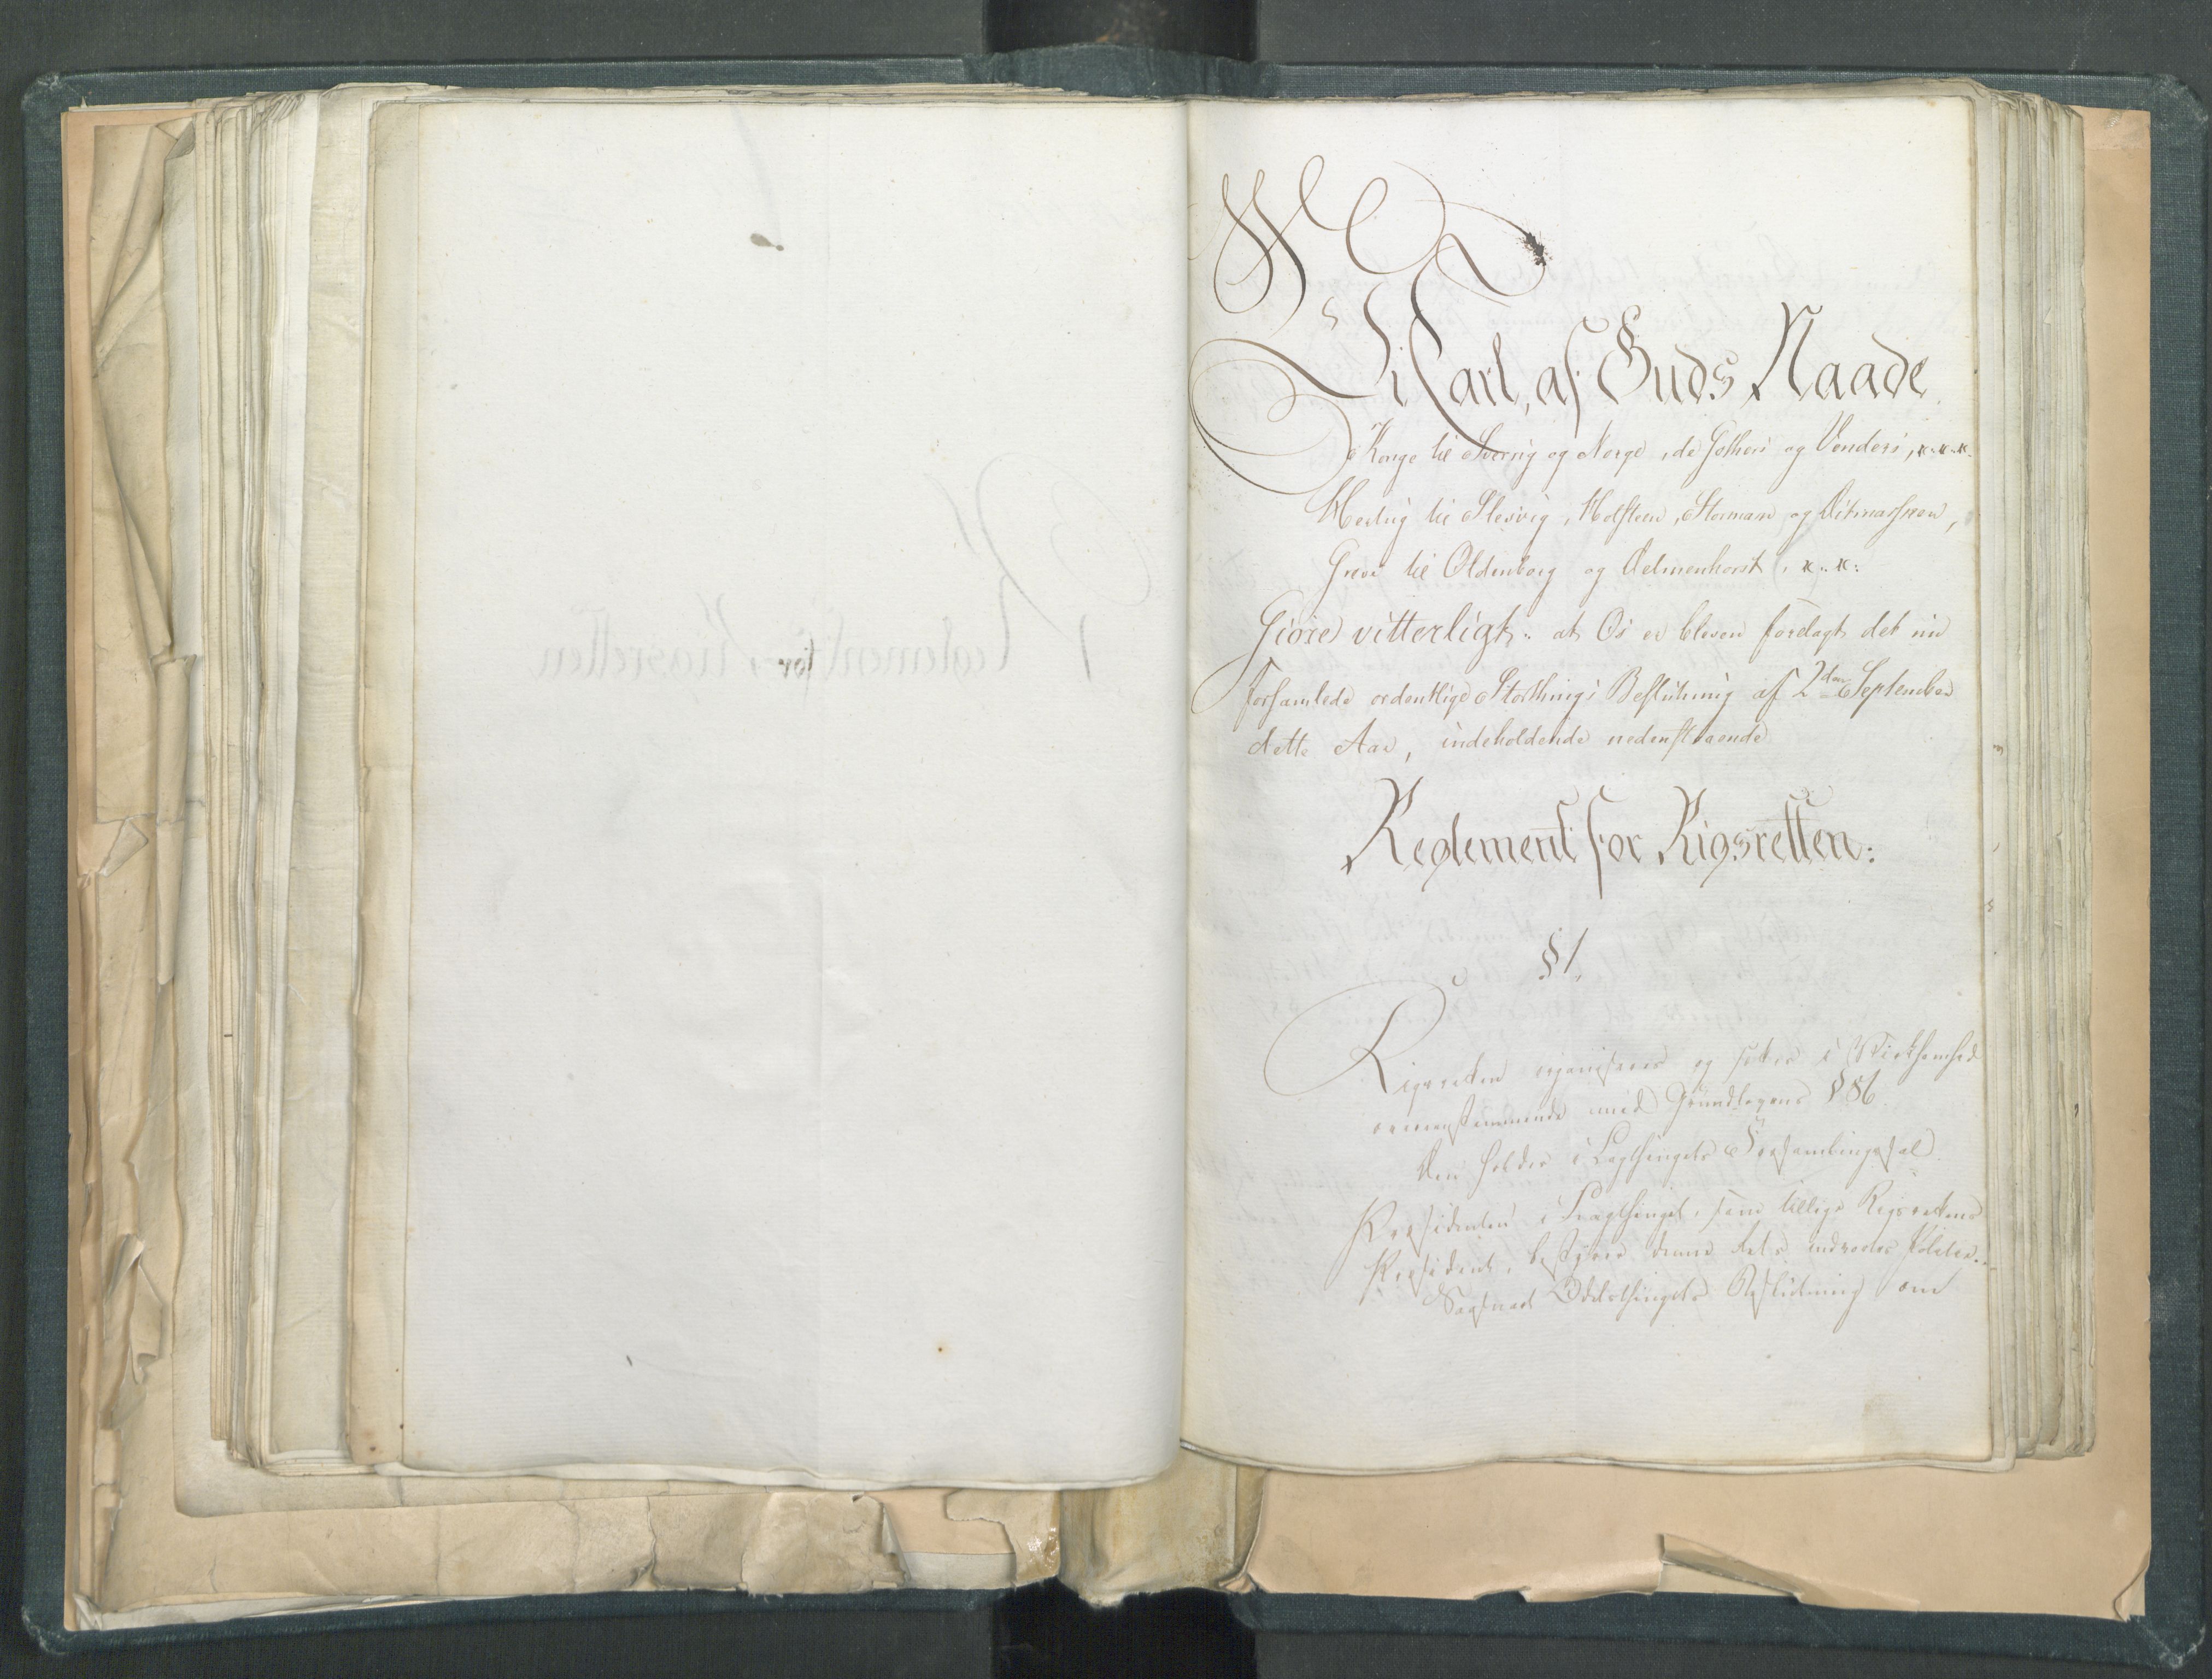 Vi Carl, af Guds Naade
Konge til Sverrig og Norge, de Gothers og Venders, &c. &c.
Hertug til Slesvig, Holsteen, Stormarn og Ditmarsken,
Greve til Oldenborg og Delmenhorst, &c. &c.
Giøre vitterligt: at Os er bleven forelagt det nu
forsamlede ordentlige Storthings Beslutning af 2den September
dette Aar, indeholdende nedenstaaende
Reglement for Rigsretten:
§ 1.
Rigsretten organiseres og sættes i Virksomhed
overensstemmende med Grundlovens § 86.
Den holdes i Lagthingets Forsamlingssal.
Præsidenten i Lagthinget, som tillige Rigsrettens
Præsident, bestyrer denne Rets indvortes Politie.
Saasnart Odelsthingets Beslutning om